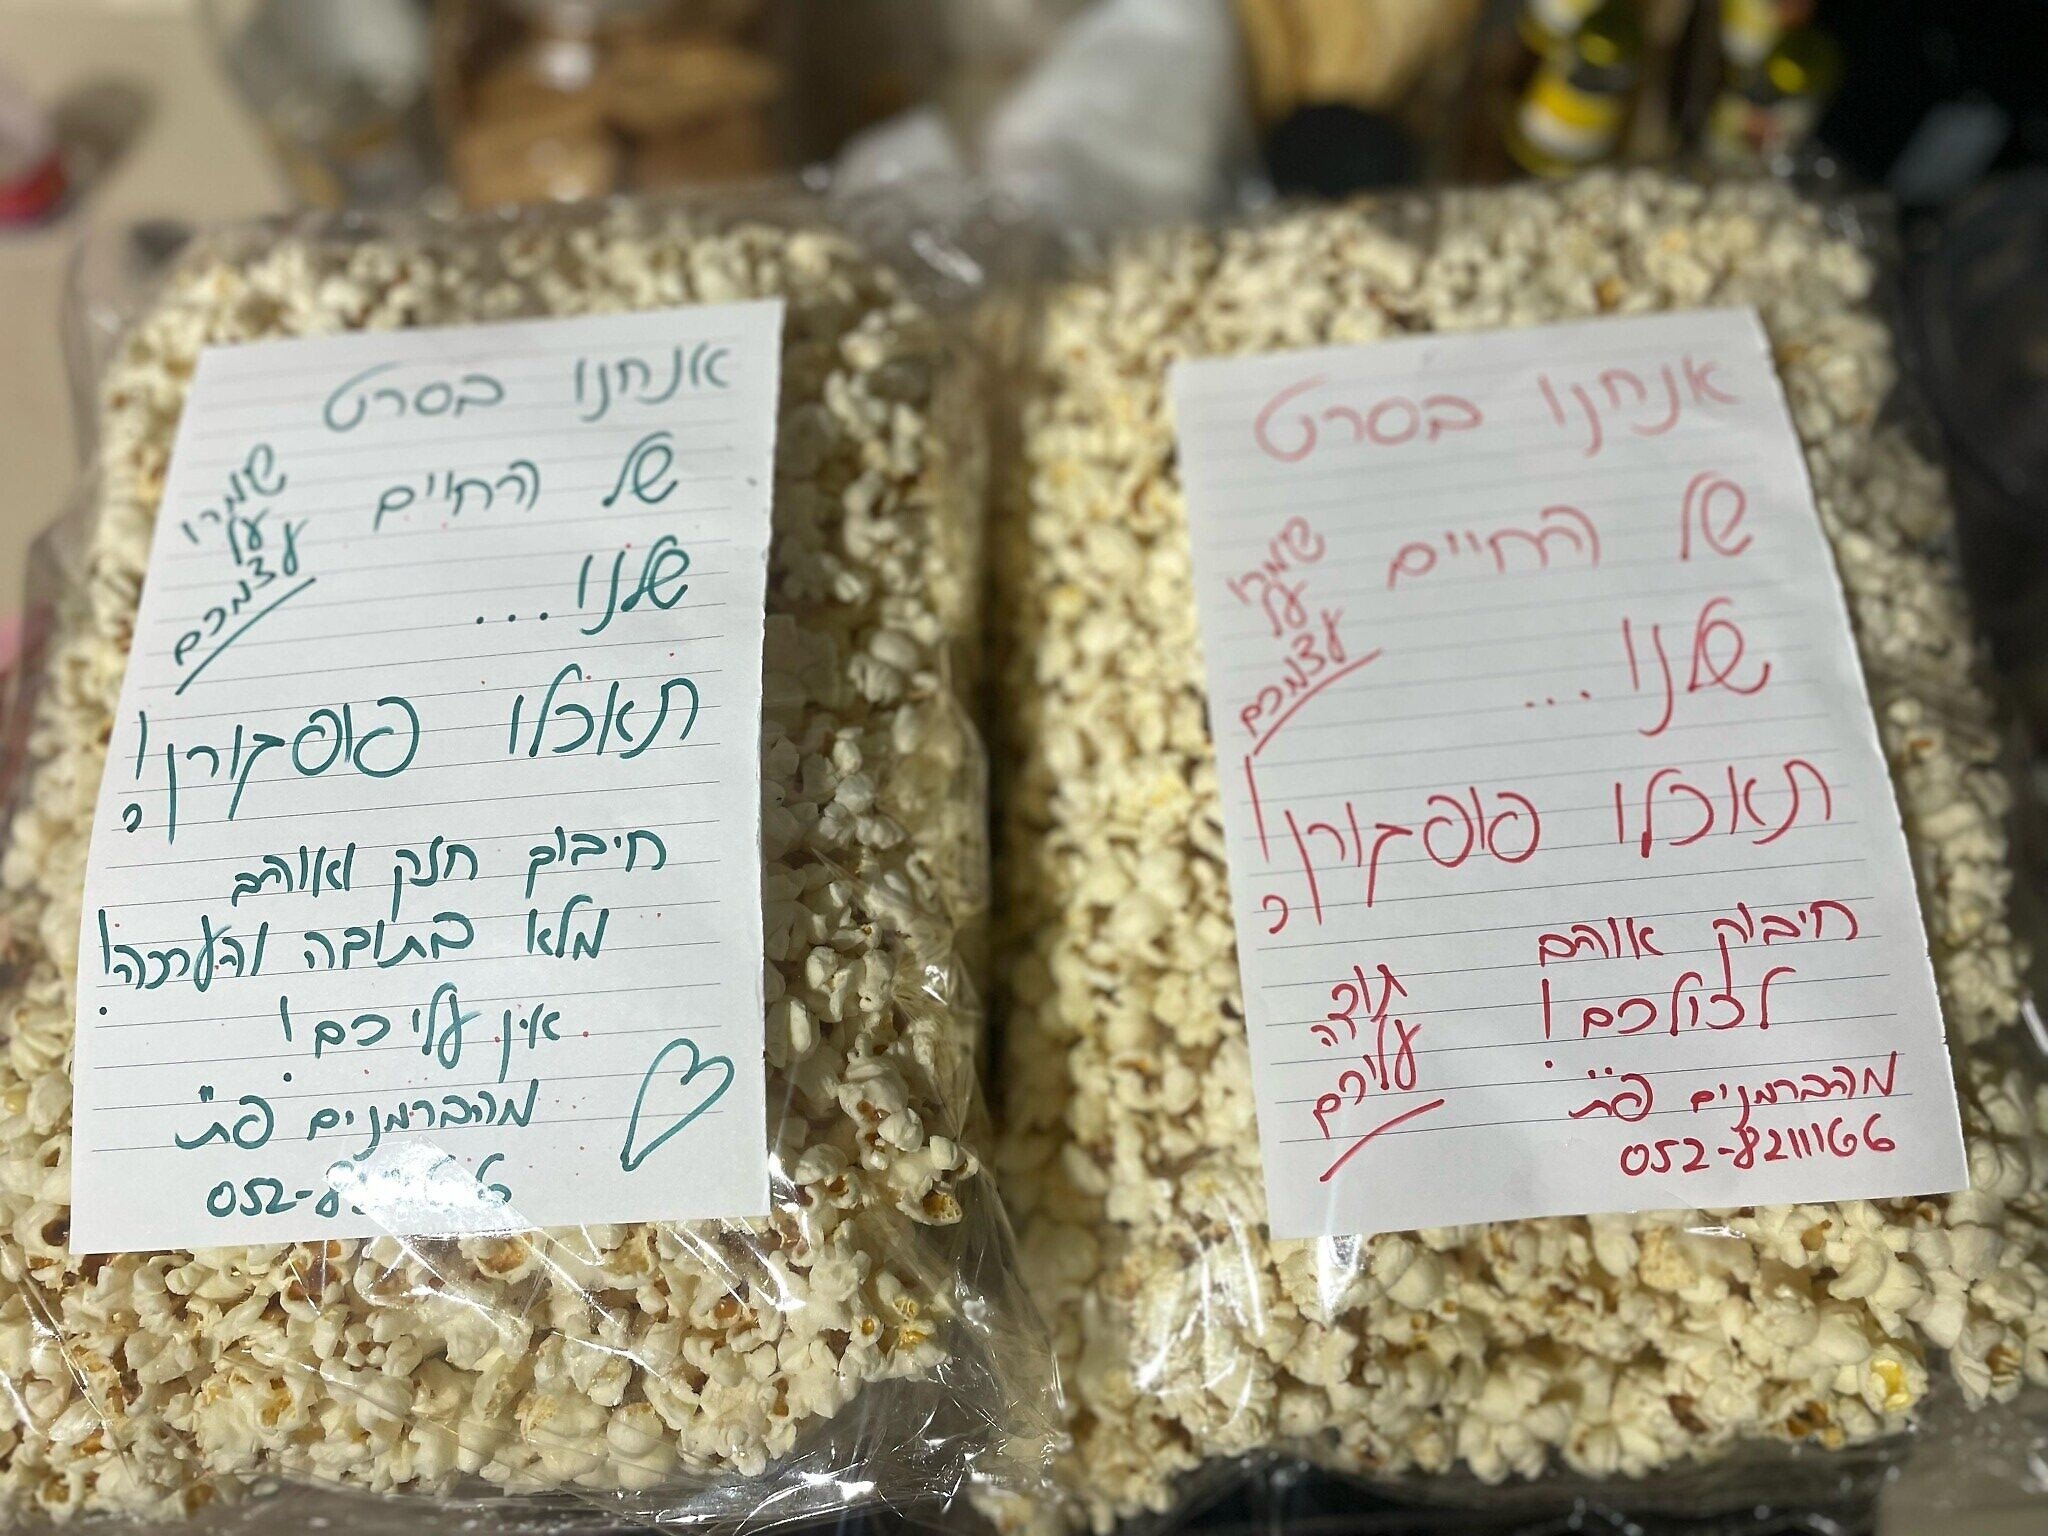 אנחנו בסרט
של החיים
שלנו...
שמרו
על
עצמכם
תאכלו פופקורן!
חיבוק חזק ואוהב
מלא בתודה והערכה!
אין עליכם!
מהברמנים פ"ת
052-8
אנחנו בסרט
של החיים
שלנו...
שמרו
על
עצמכם
תאכלו פופקורן!
חיבוק אוהב
לכולכם!
תודה
עליכם
מהברמנים פ"ת
052-8211166